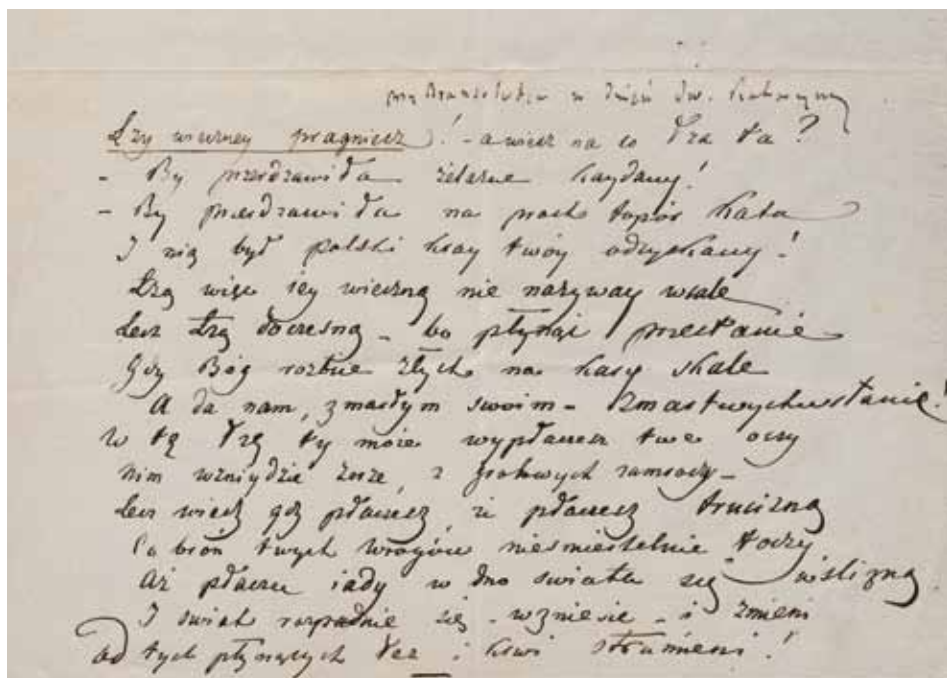 przy Bransoletce w dzień Sw. Katarzyny
Łzy wieczney pragniesz! - a wiesz na co łza ta?
- By przerdzawiła żelazne kaydany!
- By przerdzawiła na proch topór kata
I nią był polski kray twóy odzyskany!
Łzą więc iey wieczną nie nazyway wcale
Lecz łzą doczesną - bo płynąć przestanie
Gdy Bóg rozbije złych na kary skale
A da nam, zmarłym swoim - zmartwychwstanie!
W tę łzę ty może wypłaczesz twe oczy
Nim wzniydzie zorze, z grobowych
Lecz wiedz gdy płaczesz, że płaczesz trucizną
Co broń twych wrogów nieśmiertelnie toczy
Aż płaczu iady w dno świata się wślizną
I świat rozpadnie się - wzniesie - i zmieni
Od tych płynących łez i krwi strumieni!